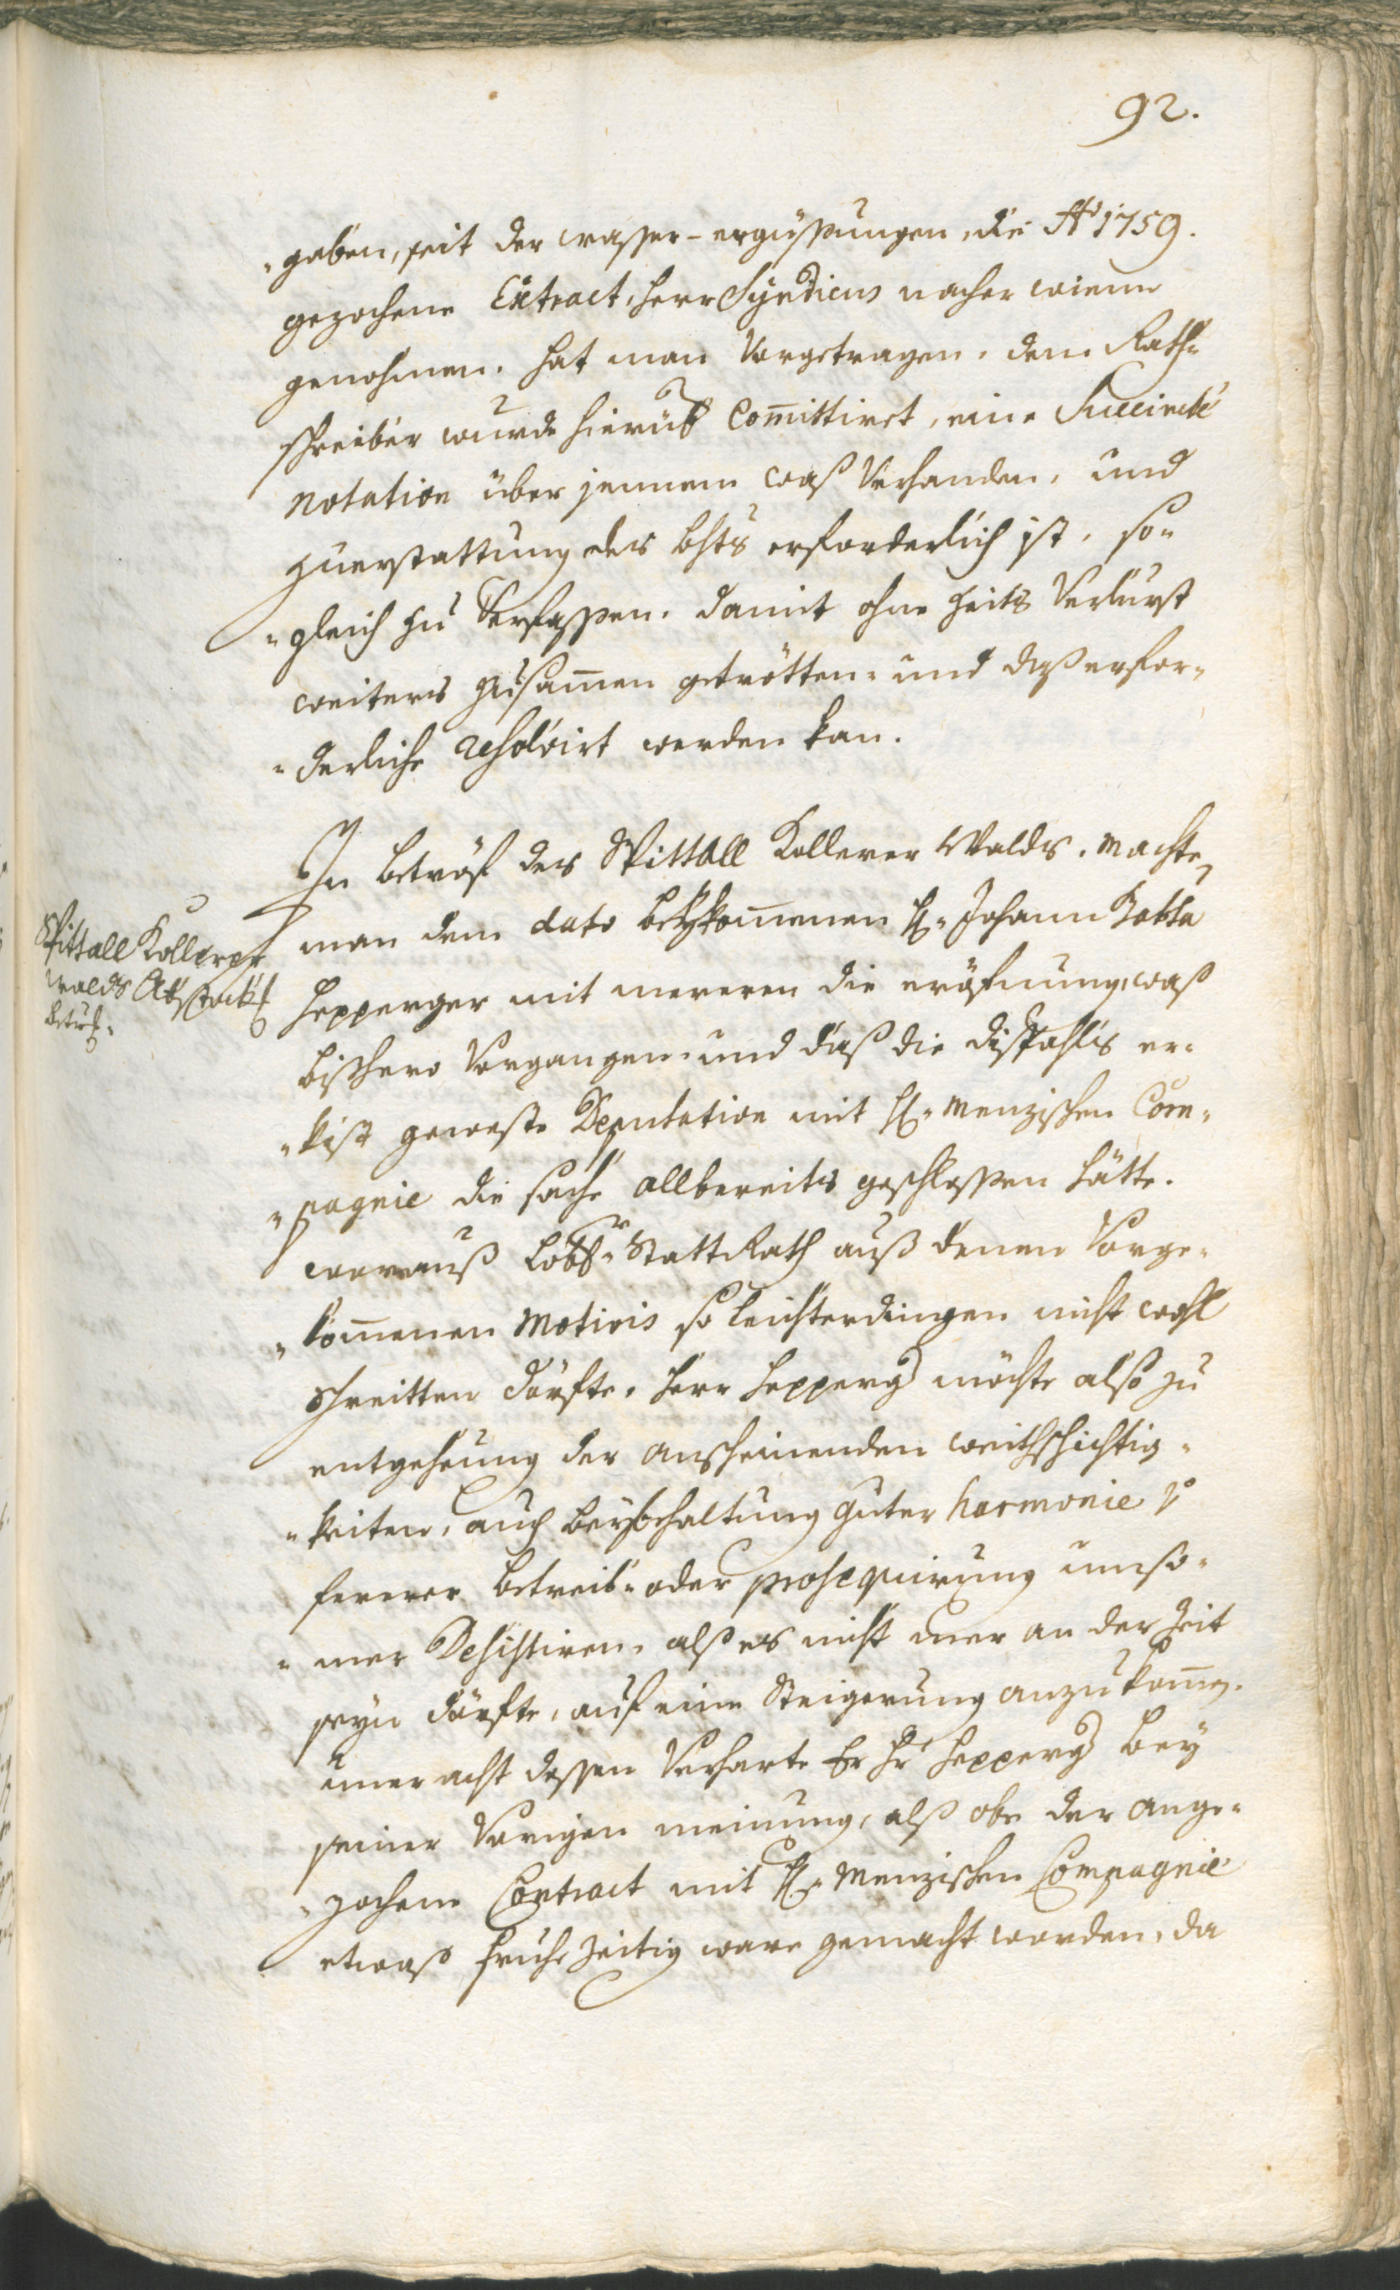 92.
"gaben, seit der wasser-ergüssungen, die Aō 1759.
gezochene Extract, Herr Syndicus nacher wienn
genohmen. hat man Vorgetragen. dem Rath-
schreiber wurde hierüb Com̄ittiret, eine Succincte
notation über jennem waß Verhanden, und
zuerstattung des bhts erforderlich ist, so-
"gleich zu Verfassen. damit ohne Zeits Verlurst
weiters zusam̄en getrötten- und daß erfor-
"derliche resolvirt werden kan.
In betröf des Spittall Kollerer Walds. machte
man dem dato bekom̄enen H. Johann
Hepperger mit mereren die eröfnung, waß
bishero Vorgangen, und daß die dissfahls er-
"kist geweste Deputation mit H. Menzischen Com-
"pagnie die sache allbereits geschlossen hätte.
worauß Löbl. Statt Rath auß denen Vorge-
"kom̄enen Motivis so leichterdingen nicht wohl
schreitten dörfte. Herr Hepperg möchte also zu
entgehung der anscheinenden weithschichtig-
"keiten, auch beybehaltung guter harmonie
fererer betreib- oder prosequirung umso-
"mer Desistiren, alß es nicht mer an der Zeit
seyn dörfte, auf eine Steigerung anzukom̄en.
uneracht dessen Verharte Er Hr Hepperg bey
seiner Vorigen meinung, alß obe der ange-
"zochene Contract mit H. Menzischen Compagnie
etwaß fruhe zeitig ware gemacht worden, da
Spittall Kollerer
Walds Abstock
betrf.